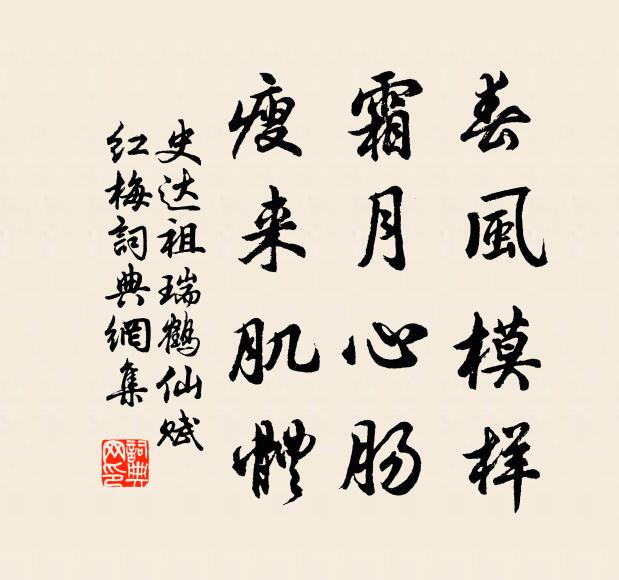 春風模样
霜月心肠
瘦来肌體
史达祖瑞鶴仙赋
红梅詞典網集
詞典网印